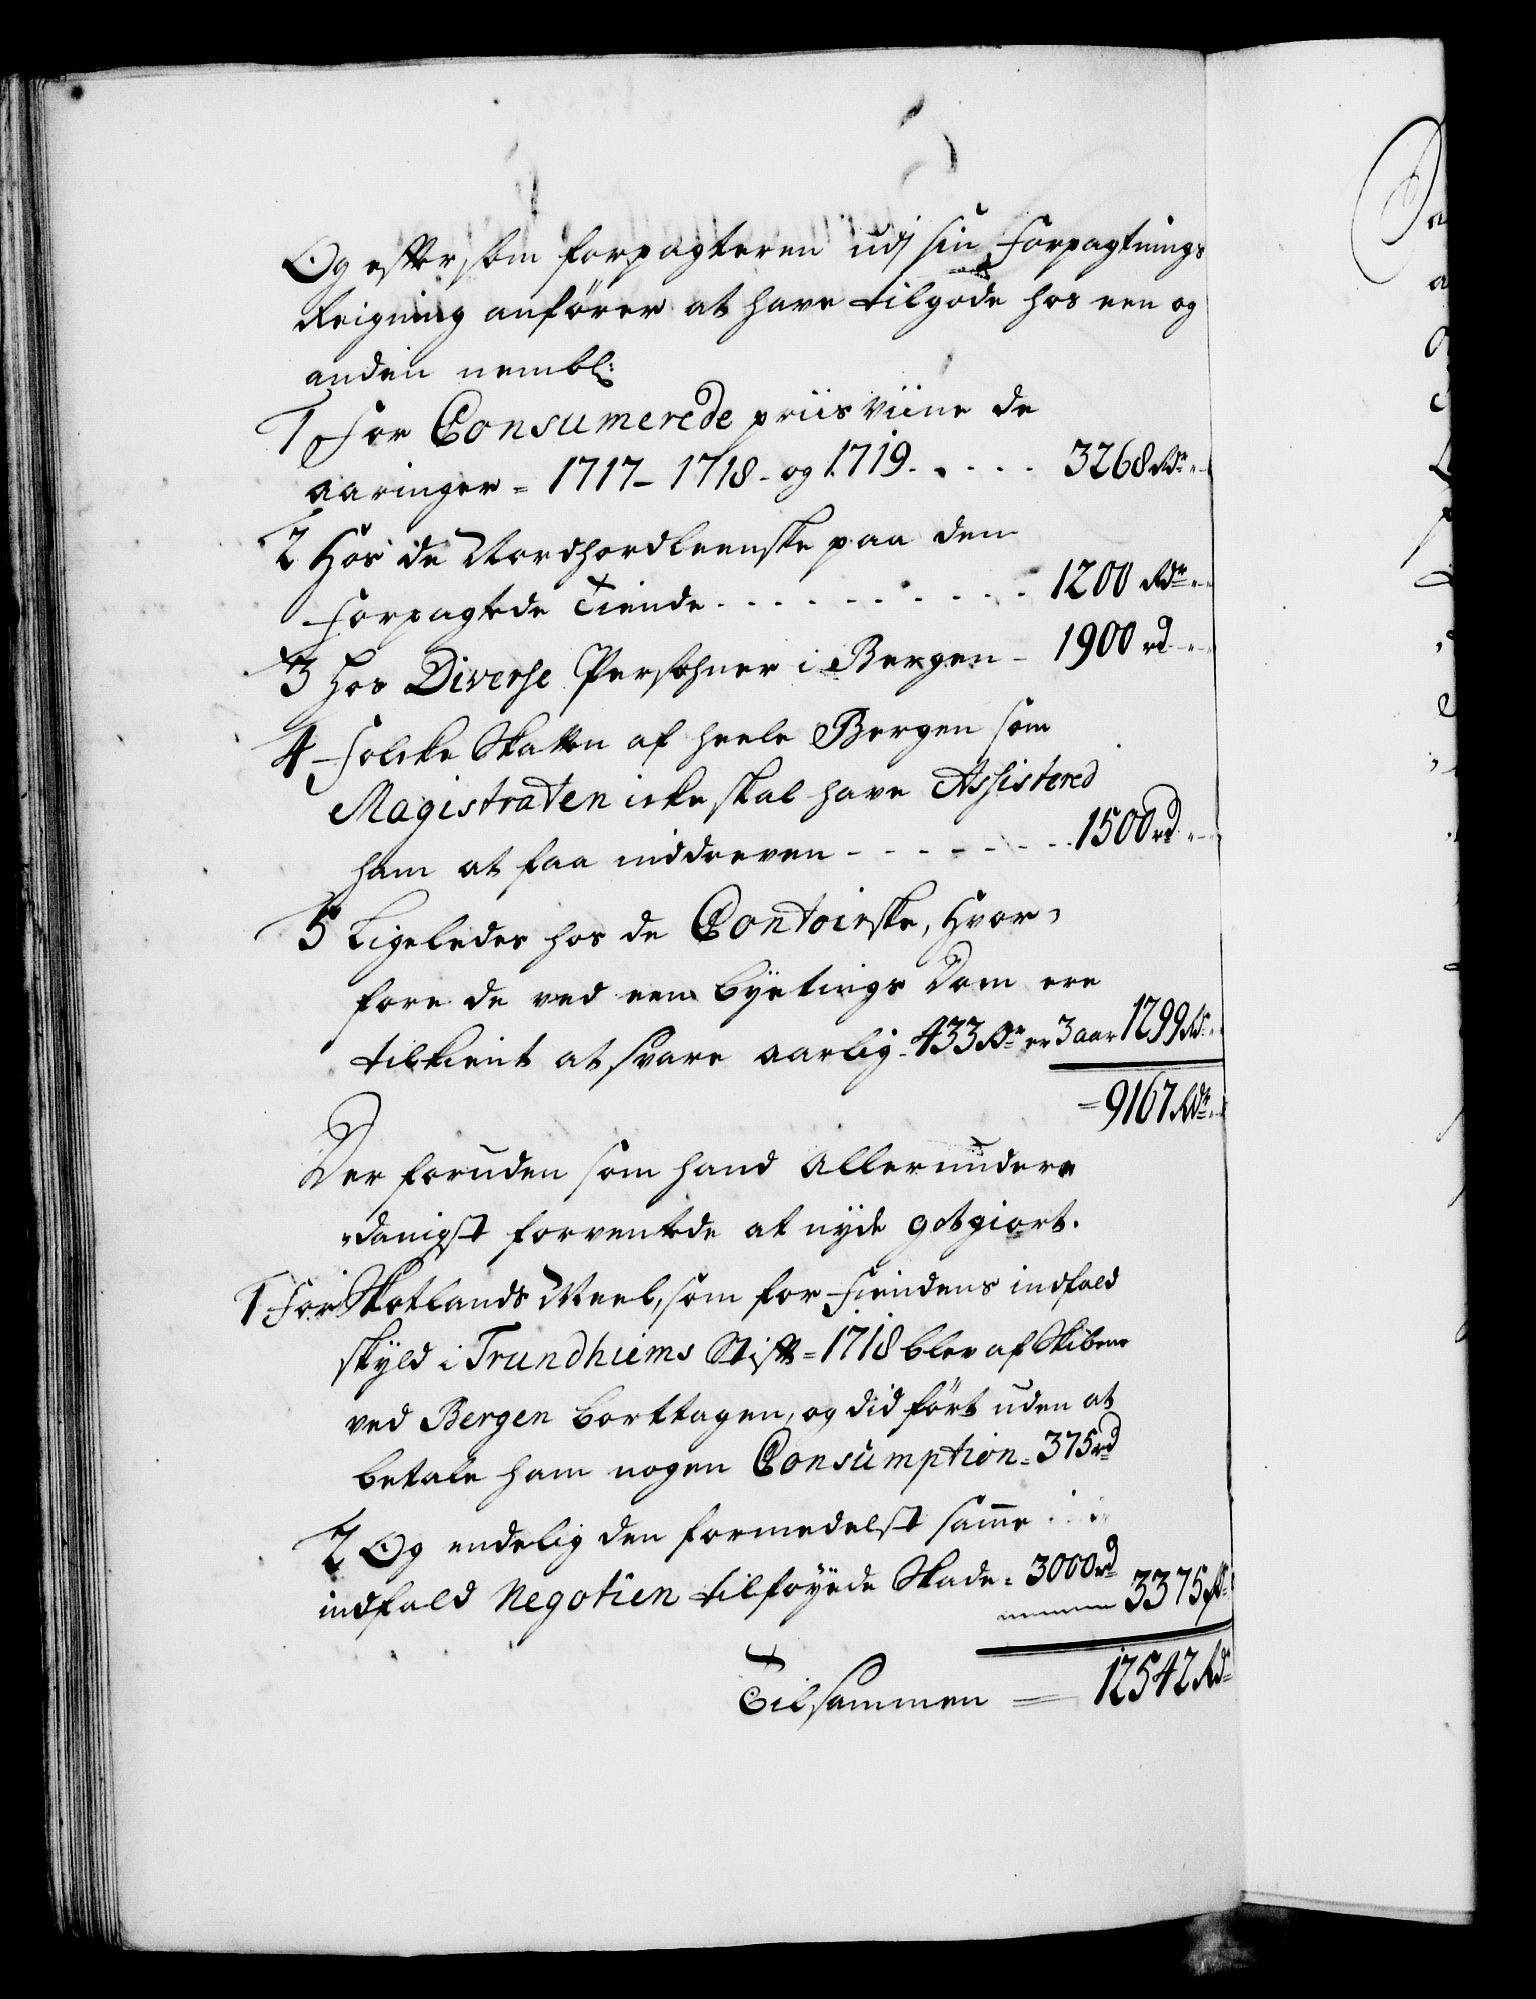 Og efftersom forpagteren udj sin Forpagtnings
Reigning anfører at have tilgode hos een og
anden nembl:
1 For Consumerede priis Viine de
aaringer = 1717 - 1718 - og 1719 . . . . . 3268 Rdr
2 Hos de Nordhordleenske paa den
Forpagtede Tiende . . . . . . . . . 1200 Rdr
3 Hos Diverse Persohner i Bergen - 1900 rd
4 Folcke Skatten af heele Bergen som
Magistraten icke skal have Assistered
ham at faa inddreven - - - - - - - 1500 rd
5 Ligeledes hos de Contoirske, Hvor-
fore de ved een byetings Dom ere
tilkient at svare aarlig - 433 Rdr er 3 aar 1299 Rdr
= 9167 Rdr
Der foruden som hand allerunder-
danigst forventede at nyde gotgiort.
1 For Skotlands Meel, som for Fiendens indfald
skyld i Trundhiems Stift = 1718 blev af Skibene
ved Bergen borttagen, og did ført uden at
betale ham nogen Consumption = 375 rd
2 Og endelig den formedelst samme
indfald Negotien tilføyede Skade = 3000 rd
3375 Rdr
Tilsammen = 12542 Rdr